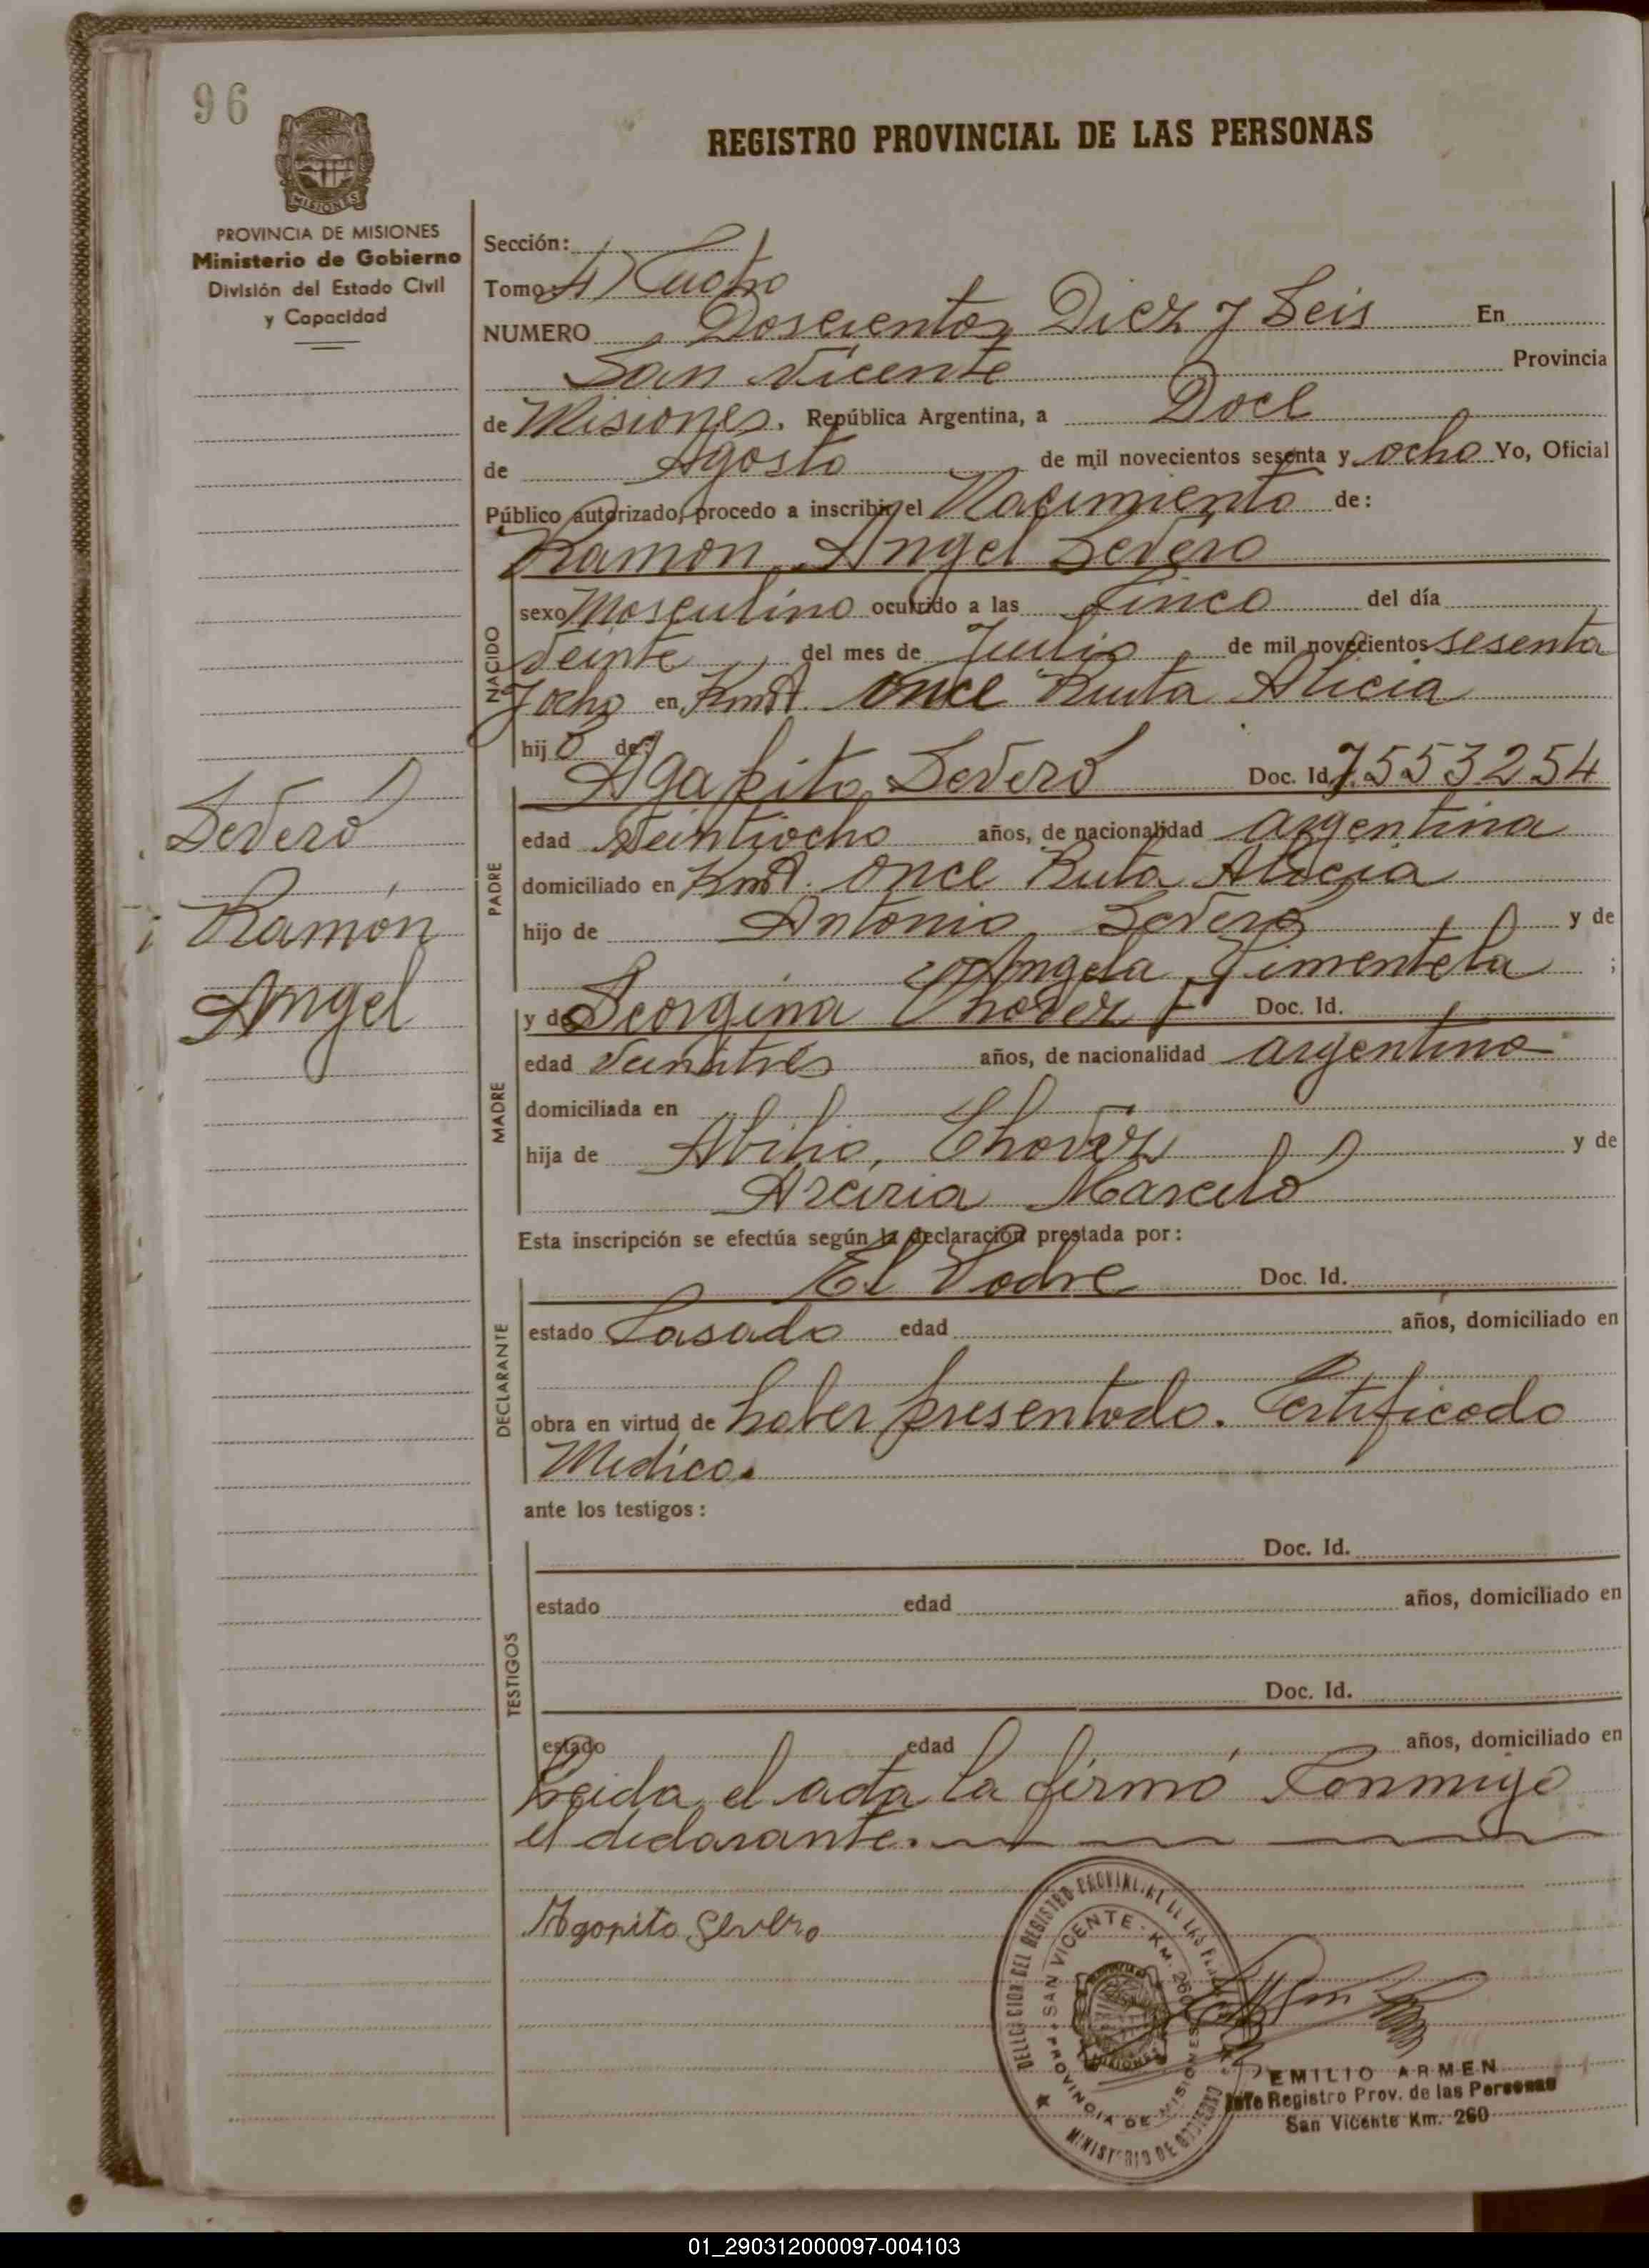 96
REGISTRO PROVINCIAL DE LAS PERSONAS
PROVINCIA DE MISIONES
Ministerio de Gobierno
División del Estado Civil
y Capacidad
Sección:
Tomo: 4) Cuatro
NUMERO Doscientos Diez y Seis En
San Vicente Provincia
de Misiones. República Argentina, a Doce
de Agosto de mil novecientos sesenta y ocho Yo, Oficial
Público autorizado, procedo a inscribir el Nacimiento de:
Ramon Angel Severo
NACIDO
sexo Masculino ocurrido a las Cinco del día
Veinte del mes de Julio de mil novecientos sesenta
y ocho en Kmt. Once Ruta Alicia
hijo de:
Agapito Severo Doc. Id. 7.553254
PADRE
edad Veintiocho años, de nacionalidad argentina
domiciliado en Kmt. Once Ruta Alicia
hijo de Antonio Severo y de
Angela Pimentela ;
y de Georgina Chavez Doc. Id.
MADRE
edad Veintitres años, de nacionalidad argentina
domiciliada en
hija de Abilio, Chavez y de
Marcelo
Esta inscripción se efectúa según la declaración prestada por:
El Padre Doc. Id.
DECLARANTE
estado Casado edad años, domiciliado en
obra en virtud de haber presentado. Certificado
Medico.
ante los testigos:
Doc. Id.
TESTIGOS
estado edad años, domiciliado en
Doc. Id.
estado edad años, domiciliado en
Leida el acta la firmó Conmigo
el declarante.
Agapito Severo
Severo
Ramón
Angel
DELEGACION DEL REGISTRO PROVINCIAL DE LAS PERSONAS
SAN VICENTE - KM. 260
PROVINCIA DE MISIONES
MINISTERIO DE GOBIERNO
EMILIO ARMEN
Jefe Registro Prov. de las Personas
San Vicente Km. 260
01_290312000097-004103